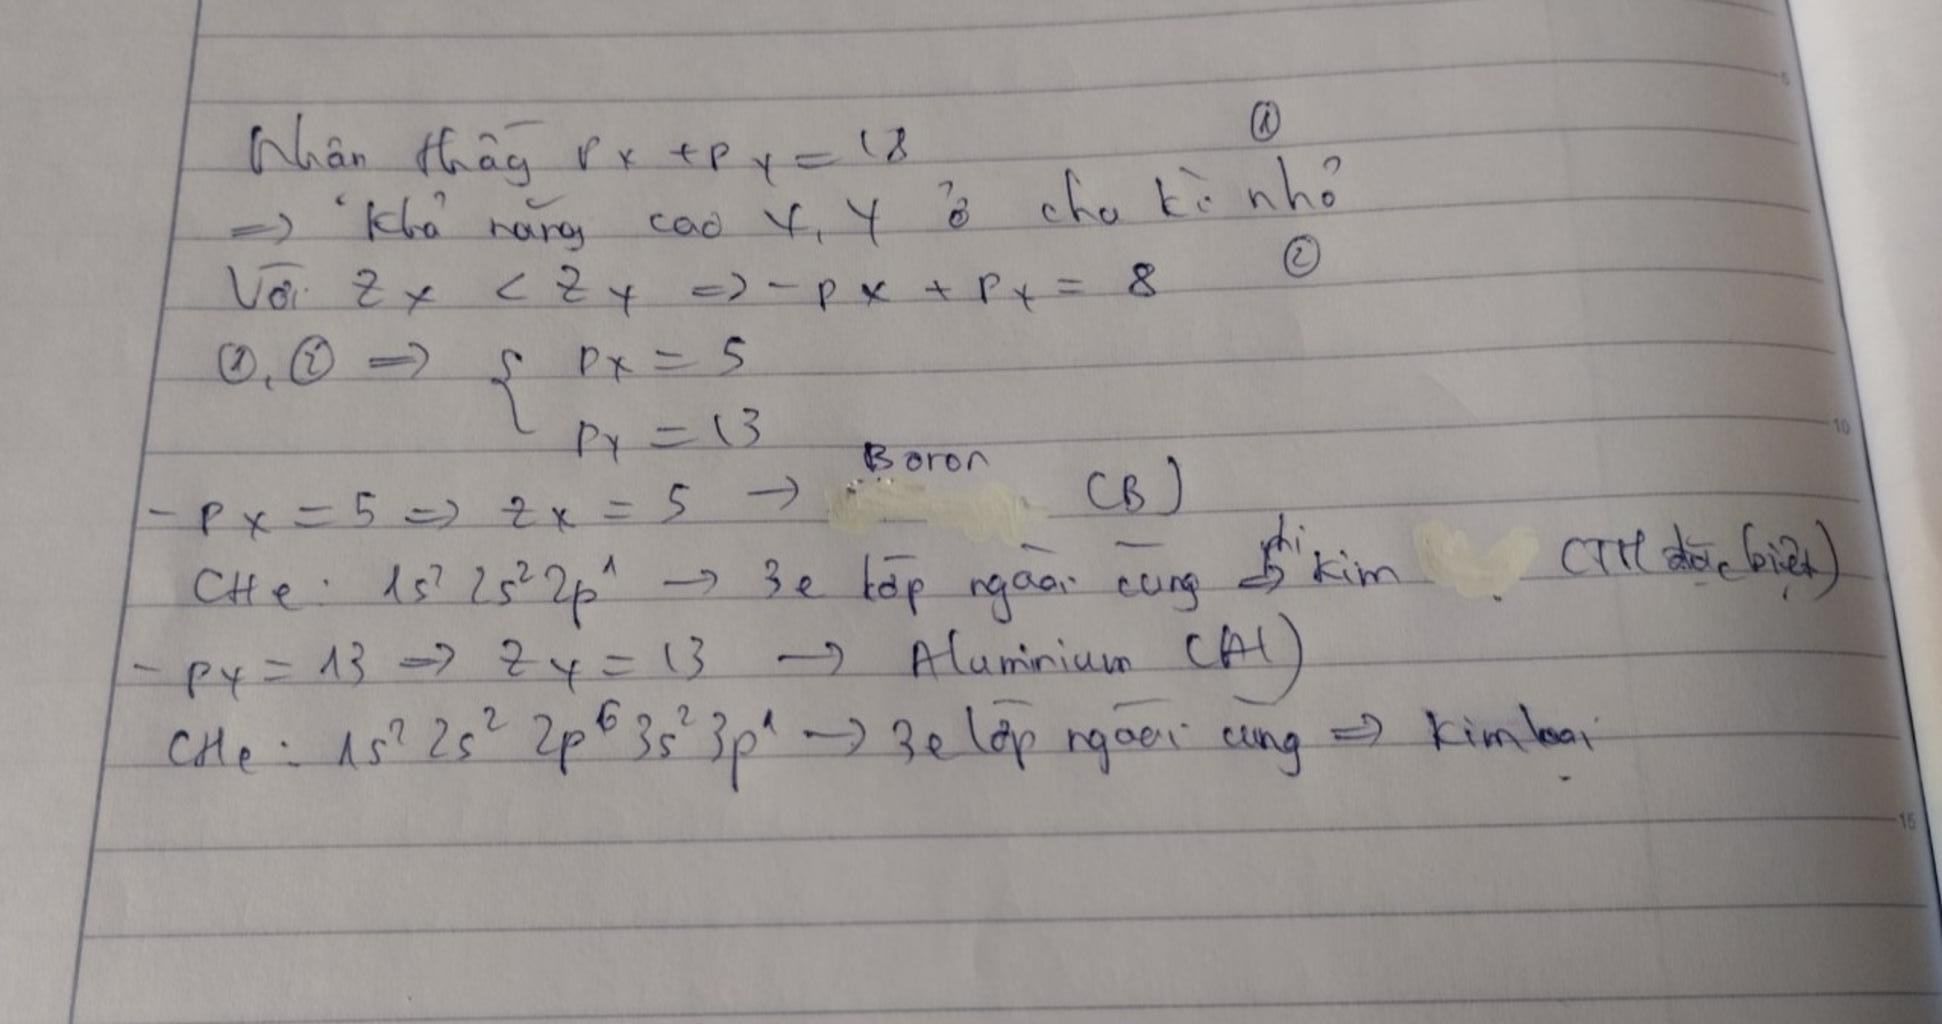 Nhận thấy Px + Py = 18 ①
=> Khả năng cao X, Y ở chu kì nhỏ
Với Zx < Zy => - Px + Py = 8 ②
①, ② => { Px = 5
Py = 13
- Px = 5 => Zx = 5 → Boron (B)
CHe: 1s² 2s² 2p¹ → 3e lớp ngoài cùng => phi kim (TH đặc biệt)
- Py = 13 => Zy = 13 → Aluminium (Al)
CHe: 1s² 2s² 2p⁶ 3s² 3p¹ → 3e lớp ngoài cùng => kim loại
5
10
15